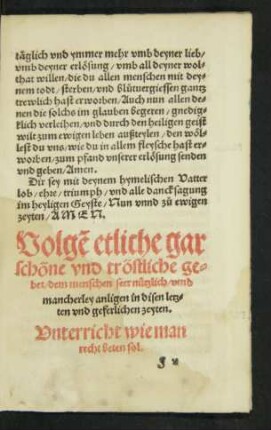 täglich vnd ymmer mehr vmb deyner lieb/
vmb deyner erlösung/ vmb all deyner wol-
that willen/ die du allen menschen mit dey-
nem todt/ sterben/ vnd blůtuergiessen gantz
trewlich hast erworben/ Auch nun allen de-
nen die solchs im glauben begeren/ gnedig-
klich verleihen/ vnd durch den heiligen geist
wilt zum ewigen leben außteylen/ den wöl-
lest du vns/ wie du in allem fleysche hast er-
worben/ zum pfand vnserer erlösung senden
vnd geben/ Amen.
Dir sey mit deynem hymelischen Vatter
lob/ ehre/ triumph/ vnd alle dancksagung
im heyligen Geyste/ Nun vnnd zů ewigen
zeyten/ AMEN.
Volgē etliche gar
schöne vnd tröstliche ge-
bet/ dem menschen seer nützlich/ vmb
mancherley anligen in disen letz-
ten vnd geferlichen zeyten.
Vnterricht wie man
recht beten sol.